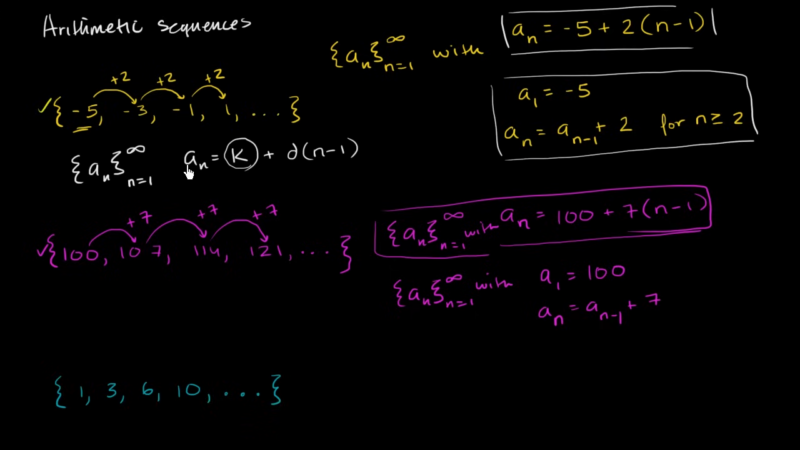 Arithmetic sequences
{a_n}_{n=1}^∞ with a_n = -5 + 2(n-1)
+2 +2 +2
✓{-5, -3, -1, 1, ...}
a_1 = -5
a_n = a_{n-1} + 2 for n ≥ 2
{a_n}_{n=1}^∞ a_n = K + d(n-1)
+7 +7 +7
✓{100, 107, 114, 121, ...}
{a_n}_{n=1}^∞ with a_n = 100 + 7(n-1)
{a_n}_{n=1}^∞ with a_1 = 100
a_n = a_{n-1} + 7
{1, 3, 6, 10, ...}